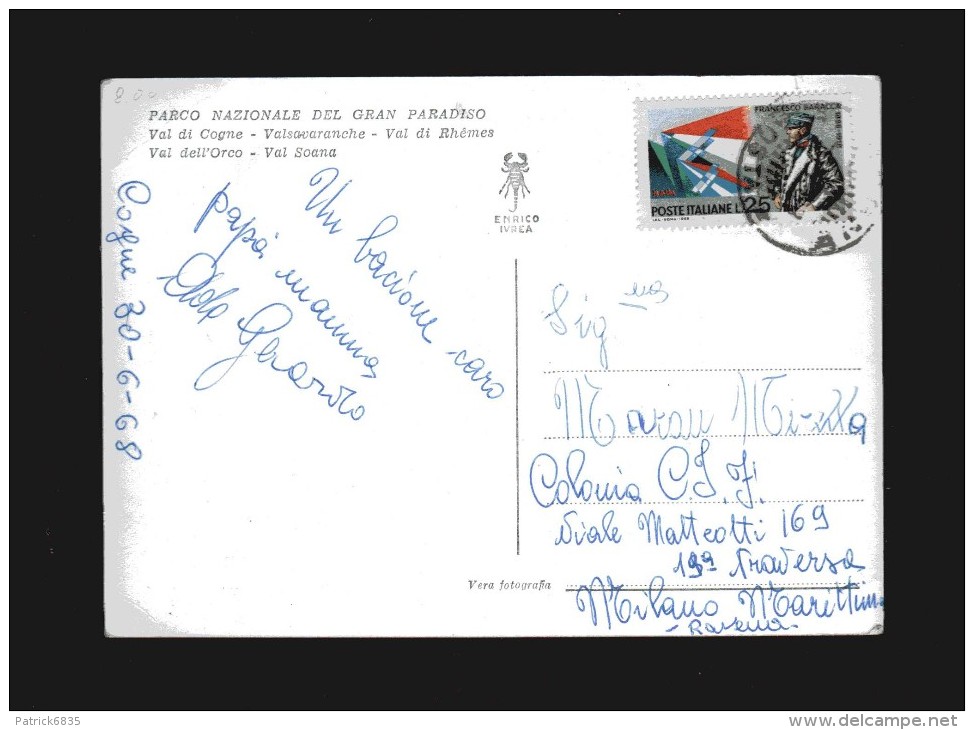 PARCO NAZIONALE DEL GRAN PARADISO
Val di Cogne - Valsavaranche - Val di Rhêmes
Val dell'Orco - Val Soana
ENRICO
IVREA
FRANCESCO BARACCA
ITALIA
POSTE ITALIANE L. 25
Cogne 30-6-68
Un bacione caro
papà mamma
Gerardo
Sig.na
Maran Mirella
Colonia C.I.F.
Viale Matteotti 169
19ª Traversa
Milano Marittima
- Ravenna -
Vera fotografia
Patrick6835
delcampe.net